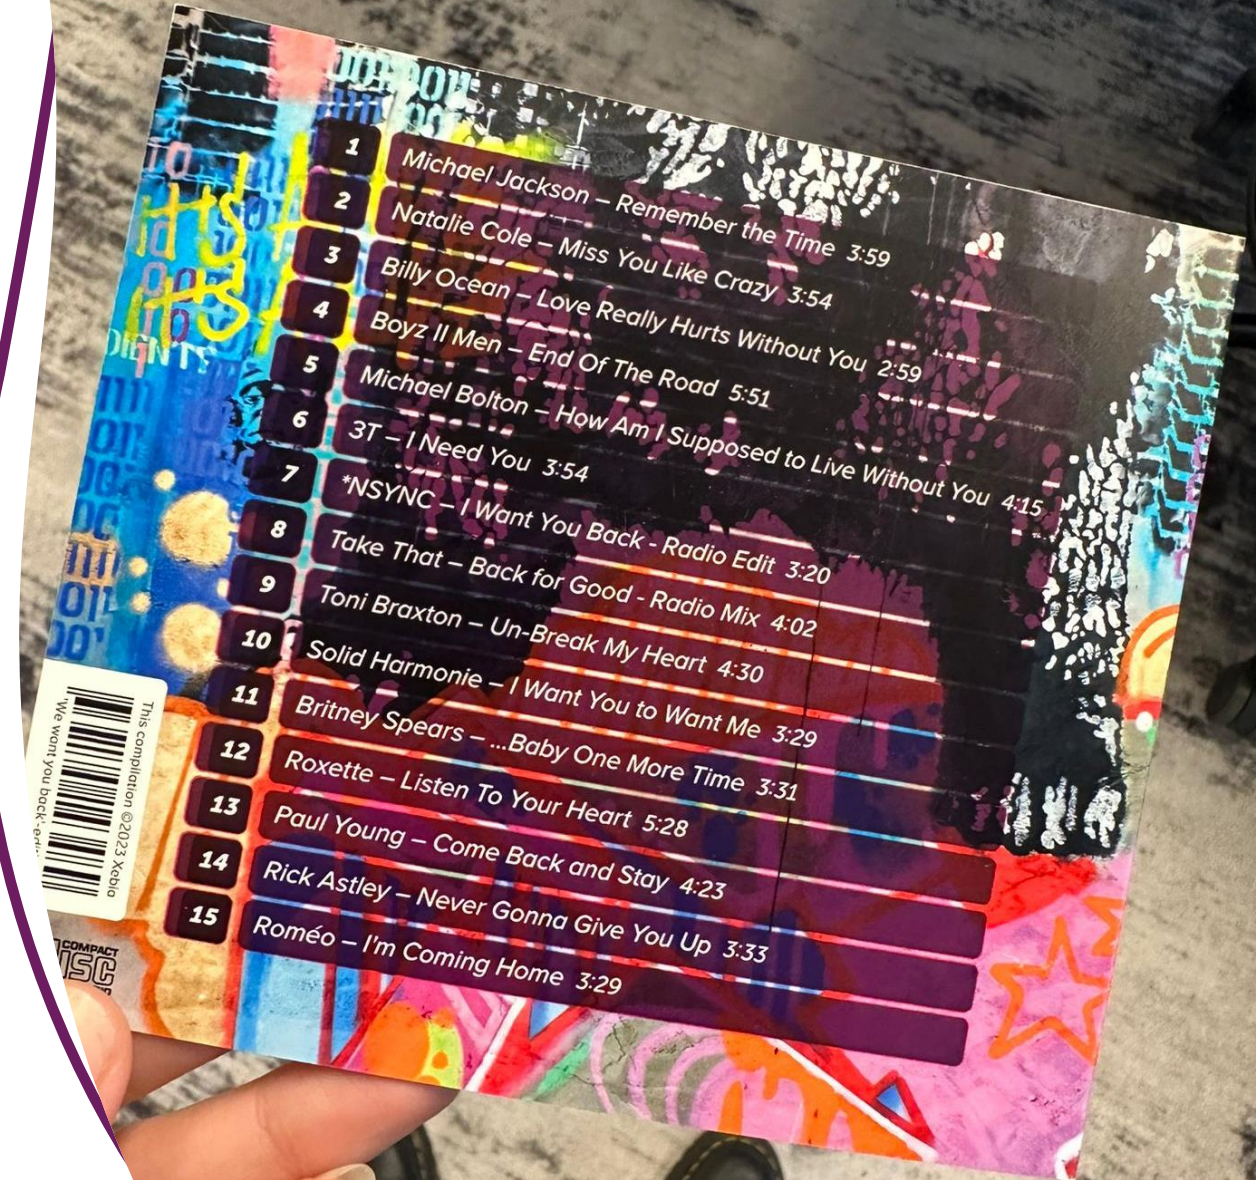 1 Michael Jackson – Remember the Time 3:59
2 Natalie Cole – Miss You Like Crazy 3:54
3 Billy Ocean – Love Really Hurts Without You 2:59
4 Boyz II Men – End Of The Road 5:51
5 Michael Bolton – How Am I Supposed to Live Without You 4:15
6 3T – I Need You 3:54
7 *NSYNC – I Want You Back - Radio Edit 3:20
8 Take That – Back for Good - Radio Mix 4:02
9 Toni Braxton – Un-Break My Heart 4:30
10 Solid Harmonie – I Want You to Want Me 3:29
11 Britney Spears – ...Baby One More Time 3:31
12 Roxette – Listen To Your Heart 5:28
13 Paul Young – Come Back and Stay 4:23
14 Rick Astley – Never Gonna Give You Up 3:33
15 Roméo – I'm Coming Home 3:29
This compilation ©2023 Xebia
'We want you back'
COMPACT